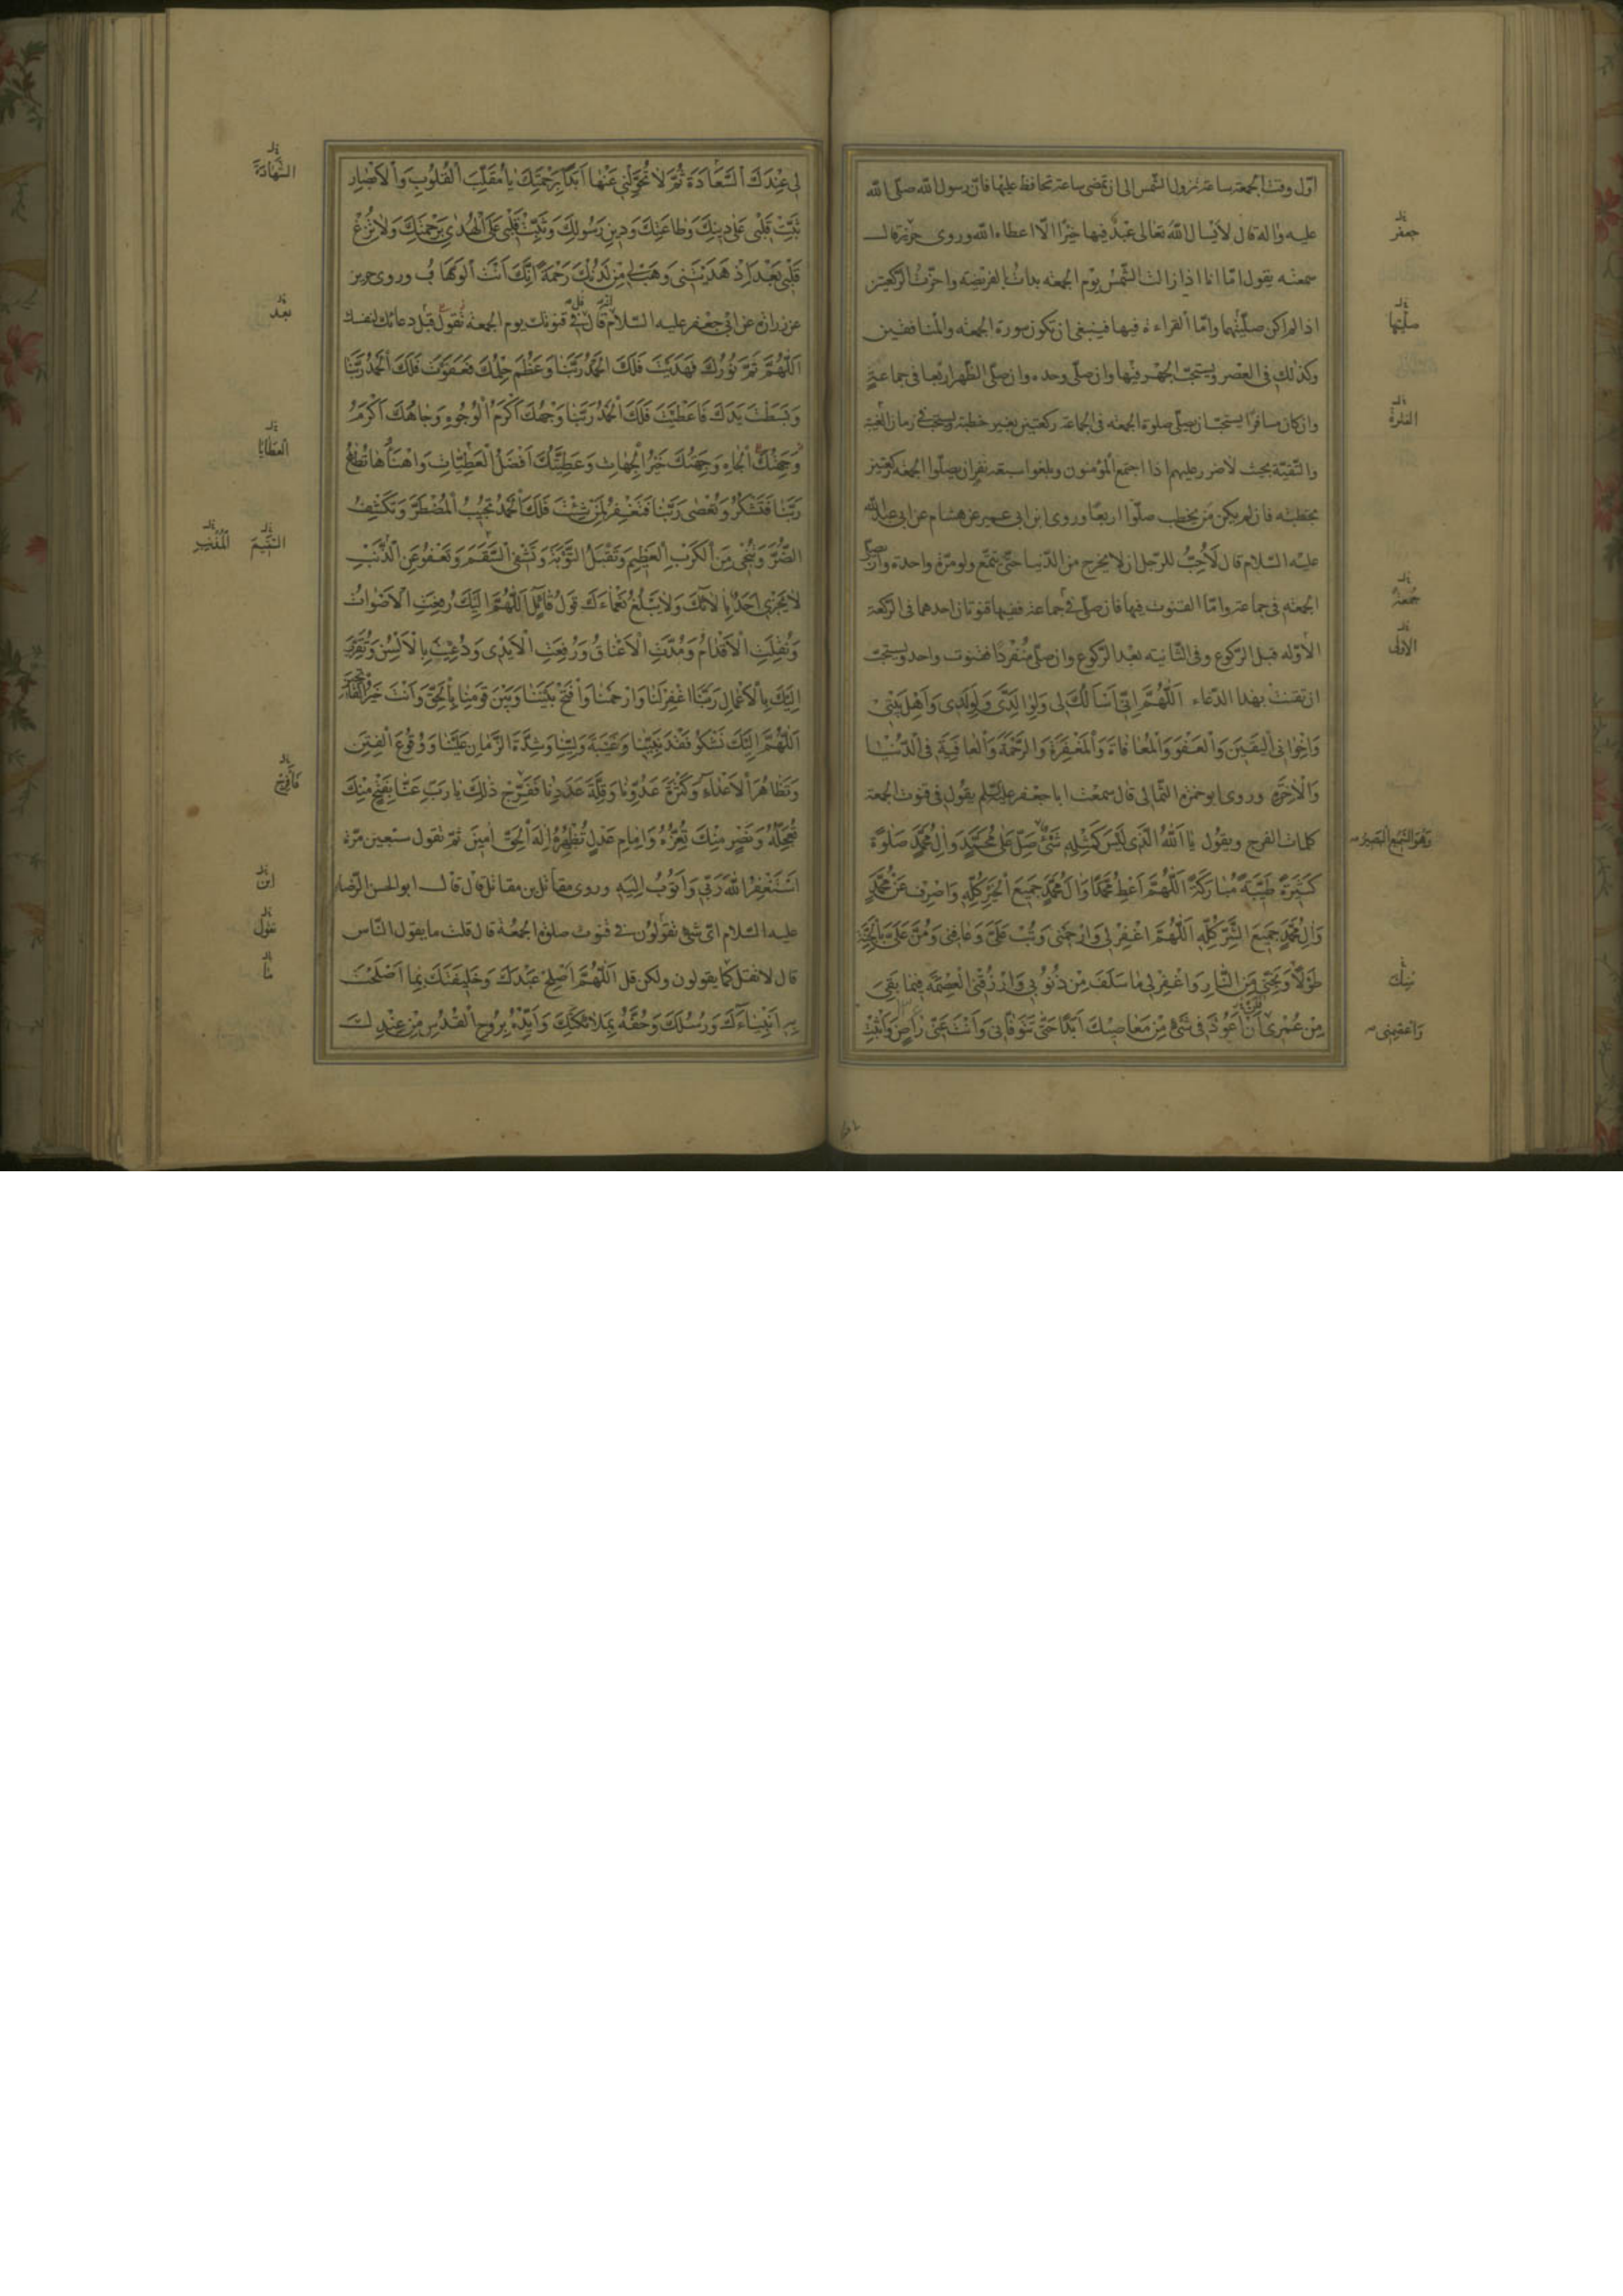 اوّل وقت الجمعة ساعة نزول الشمس الى ان تمضى ساعة تحافظ عليها فانّ رسول الله صلّى الله
عليه واله قال لا يسال الله تعالى عبدٌ فيها خيرًا الّا اعطاه الله وروى حريز قال
سمعته يقول امّا انا اذا زالت الشّمس يوم الجمعه بدات بالفريضه واخّرت الرّكعتين
اذا لم اكن صلّيتهما وامّا القراءة فيها فينبغى ان تكون سورة الجمعه والمنافقين
وكذلك فى العصر ويستحبّ الجهر فيها وان صلّى وحده وان صلّى الظّهر اربعا فى جماعةٍ
وان كان مسافرًا يستحبّ ان يصلّى صلوة الجمعه فى الجماعة ركعتين بغير خطبة ويستحب فى زمان الغيبة
والتّقيّة بحيث لا ضرر عليهم اذا اجتمع المؤمنون وبلغوا سبعة نفرٍ ان يصلّوا الجمعه ركعتين
بخطبته فان لم يكن من يخطب صلّوا اربعًا وروى ابن ابى عمير عن هشام عن ابى عبد الله
عليه السّلام قال لَاُحِبُّ للرّجل ان لا يخرج من الدّنيا حتّى يتمتّع ولو مرّة واحدة وان يصلّى
الجمعه فى جماعة وامّا القنوت فيها فان صلّى فى جماعة ففيها قنوتان احدهما فى الرّكعة
الاوّله قبل الرّكوع وفى الثّانيته بعد الرّكوع وان صلّى مُنْفَرِدًا فقنوت واحد ويستحبّ
ان تقنت بهذا الدّعاء اَللّهُمَّ اِنّى اَسْاَلُكَ لى وَلِوالِدَىَّ وَلِوَلَدى وَاَهْلِ بَيْتى
وَاِخْوانى اَلْيَقينَ وَالْعَفْوَ وَالْمُعافاةَ وَالْمَغْفِرَةَ وَالرَّحْمَةَ وَالْعافِيَةَ فىِ الدُّنْيا
وَالْاخِرَةِ وروى ابو حمزه الثّمالى قال سمعت ابا جعفر عليه السّلم يقول فى قنوت الجمعة
كلمات الفرج ويقول يا اَللّهُ الَّذى لَيْسَ كَمِثْلِهِ شَىْءٌ صَلِّ عَلى مُحَمَّدٍ وَالِ مُحَمَّدٍ صَلوةً
كَثيرَةً طَيِّبَةً مُبارَكَةً اَللّهُمَّ اَعْطِ مُحَمَّدًا وَالَ مُحَمَّدٍ جَميعَ الْخَيْرِ كُلِّهِ وَاصْرِفْ عَنْ مُحَمَّدٍ
وَالِ مُحَمَّدٍ جَميعَ الشَّرِّ كُلِّهِ اَللّهُمَّ اغْفِرْ لى وَارْحَمْنى وَتُبْ عَلَىَّ وَعافِنى وَمُنَّ عَلَىَّ بِالْجَنَّةِ
طَوْلًا وَنَجِّنى مِنَ النّارِ وَاغْفِرْ لى ما سَلَفَ مِنْ ذُنُوبى وَارْزُقْنِى الْعِصْمَةَ فيما بَقِىَ
مِنْ عُمْرى اَنْ اَعُودَ فى شَىْءٍ مِنْ مَعاصيكَ اَبَدًا حَتّى تَتَوَفّانى وَاَنْتَ عَنّى راضٍ وَاَثْبِتْ
جعفر
صلّيتها
الفترة
جُمعة
الاولى
وَهُوَ السَّميعُ الْبَصيرُ
منك
وَاعْصِمْنى
لى عِنْدَكَ السَّعادَةَ ثُمَّ لا تُحَوِّلْنى عَنْها اَبَدًا بِرَحْمَتِكَ يا مُقَلِّبَ الْقُلُوبِ وَالْاَبْصارِ
ثَبِّتْ قَلْبى عَلى دينِكَ وَطاعَتِكَ وَدينِ رَسُولِكَ وَثَبِّتْ قَلْبى عَلَى الْهُدى بِرَحْمَتِكَ وَلا تُزِغْ
قَلْبى بَعْدَ اِذْ هَدَيْتَنى وَهَبْ لى مِنْ لَدُنْكَ رَحْمَةً اِنَّكَ اَنْتَ الْوَهّابُ وروى حريز
عن زرارة عن ابى جعفر عليه السّلام قال قل فى قنوتك يوم الجمعه تقول قبل دعائك لنفسك
اَللّهُمَّ تَمَّ نُورُكَ فَهَدَيْتَ فَلَكَ الْحَمْدُ رَبَّنا وَعَظُمَ حِلْمُكَ فَعَفَوْتَ فَلَكَ الْحَمْدُ رَبَّنا
وَبَسَطْتَ يَدَكَ فَاَعْطَيْتَ فَلَكَ الْحَمْدُ رَبَّنا وَجْهُكَ اَكْرَمُ الْوُجُوهِ وَجاهُكَ اَكْرَمُ
الْجاهِ وَجِهَتُكَ خَيْرُ الْجِهاتِ وَعَطِيَّتُكَ اَفْضَلُ الْعَطِيّاتِ وَاَهْنَاُها تُطاعُ
رَبَّنا فَتَشْكُرُ وَتُعْصى رَبَّنا فَتَغْفِرُ لِمَنْ شِئْتَ فَلَكَ الْحَمْدُ تُجيبُ الْمُضْطَرَّ وَتَكْشِفُ
الضُّرَّ وَتُنْجى مِنَ الْكَرْبِ الْعَظيمِ وَتَقْبَلُ التَّوْبَةَ وَتَشْفِى السَّقَمَ وَتَعْفُو عَنِ الذَّنْبِ
لا يَجْزى اَحَدٌ بِالائِكَ وَلا يَبْلُغُ نَعْماءَكَ قَوْلُ قائِلٍ اَللّهُمَّ اِلَيْكَ رُفِعَتِ الْاَصْواتُ
وَنُقِلَتِ الْاَقْدامُ وَمُدَّتِ الْاَعْناقُ وَرُفِعَتِ الْاَيْدى وَدُعيتَ بِالْاَلْسُنِ وَتُقُرِّبَ
اِلَيْكَ بِالْاَعْمالِ رَبَّنَا اغْفِرْ لَنا وَارْحَمْنا وَافْتَحْ بَيْنَنا وَبَيْنَ قَوْمِنا بِالْحَقِّ وَاَنْتَ خَيْرُ الْفاتِحينَ
اَللّهُمَّ اِلَيْكَ نَشْكُو فَقْدَ نَبِيِّنا وَغَيْبَةَ وَلِيِّنا وَشِدَّةَ الزَّمانِ عَلَيْنا وَوُقُوعَ الْفِتَنِ
وَتَظاهُرَ الْاَعْداءِ وَكَثْرَةَ عَدُوِّنا وَقِلَّةَ عَدَدِنا فَفَرِّجْ ذلِكَ يا رَبِّ عَنّا بِفَتْحٍ مِنْكَ
تُعَجِّلُهُ وَنَصْرٍ مِنْكَ تُعِزُّهُ وَاِمامِ عَدْلٍ تُظْهِرُهُ اِلهَ الْحَقِّ امينَ ثمّ تقول سبعين مرّة
اَسْتَغْفِرُ اللّهَ رَبّى وَاَتُوبُ اِلَيْهِ وروى مقاتل بن مقاتل قال قال ابو الحسن الرّضا
عليه السّلام اىّ شىء تقولون فى قنوت صلوة الجمعُة قال قلت ما يقول النّاس
قال لا تقل كما يقولون ولكن قل اَللّهُمَّ اَصْلِحْ عَبْدَكَ وَخَليفَتَكَ بِما اَصْلَحْتَ
بِهِ اَنْبِياءَكَ وَرُسُلَكَ وَحُفَّهُ بِمَلائِكَتِكَ وَاَيِّدْهُ بِرُوحِ الْقُدُسِ مِنْ عِنْدِكَ
الشَّهادَةَ
بعد
الْعَطايا
السَّقيمَ
فَافْرُجْ
ابن
نقول
ما